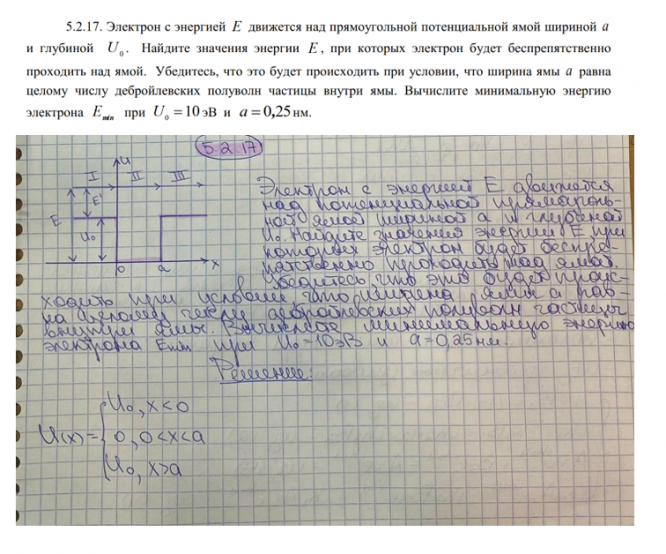 5.2.17. Электрон с энергией E движется над прямоугольной потенциальной ямой шириной a
и глубиной U₀. Найдите значения энергии E, при которых электрон будет беспрепятственно
проходить над ямой. Убедитесь, что это будет происходить при условии, что ширина ямы a равна
целому числу дебройлевских полуволн частицы внутри ямы. Вычислите минимальную энергию
электрона Eₘᵢₙ при U₀ = 10 эВ и a = 0,25 нм.
5.2.17
I U II III
E E' U₀
0 a x
Электрон с энергией E движется
над потенциальной прямоуголь-
ной ямой шириной a и глубиной
U₀. Найдите значения энергии E при
которых электрон будет беспре-
пятственно проходить над ямой.
Убедитесь, что это будет проис-
ходить при условии, что ширина ямы a рав-
на целому числу дебройлевских полуволн частицы
внутри ямы. Вычислите минимальную энергию
электрона Emin при U₀=10эВ и a=0,25нм.
Решение:
U₀, x<0
U(x)={ 0, 0<x<a
U₀, x>a